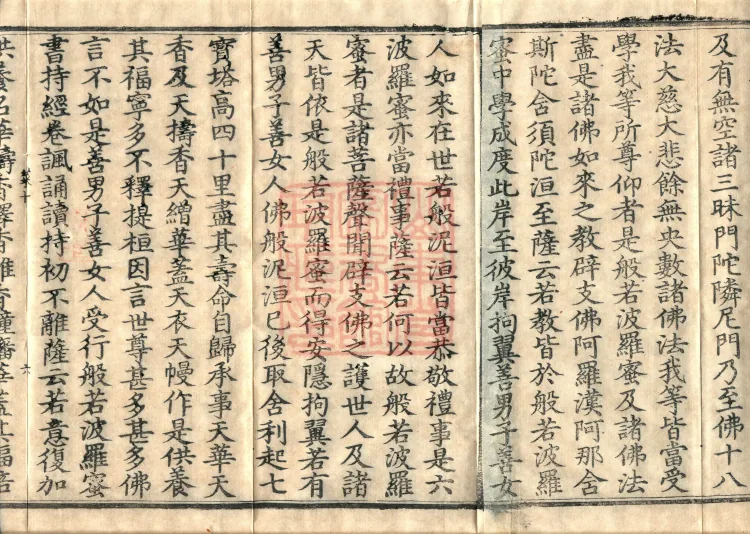 及有無空諸三昧門陀隣尼門乃至佛十八
法大慈大悲餘無央數諸佛法我等皆當受
學我等所尊仰者是般若波羅蜜及諸佛法
盡是諸佛如來之教辟支佛阿羅漢阿那含
斯陀含須陀洹至薩云若教皆於般若波羅
蜜中學成度此岸至彼岸拘翼善男子善女
人如來在世若般泥洹皆當恭敬禮事是六
波羅蜜亦當禮事薩云若何以故般若波羅
蜜者是諸菩薩聲聞辟支佛之護世人及諸
天皆依是般若波羅蜜而得安隱拘翼若有
善男子善女人佛般泥洹已後取舍利起七
寶塔高四十里盡其壽命自歸承事天華天
香及天擣香天繒華蓋天衣天幔作是供養
其福寧多不釋提桓因言世尊甚多甚多佛
言不如是善男子善女人受行般若波羅蜜
書持經卷諷誦讀持初不離薩云若意復加
六
供養名華擣香澤香雜香幢幡華蓋其福倍